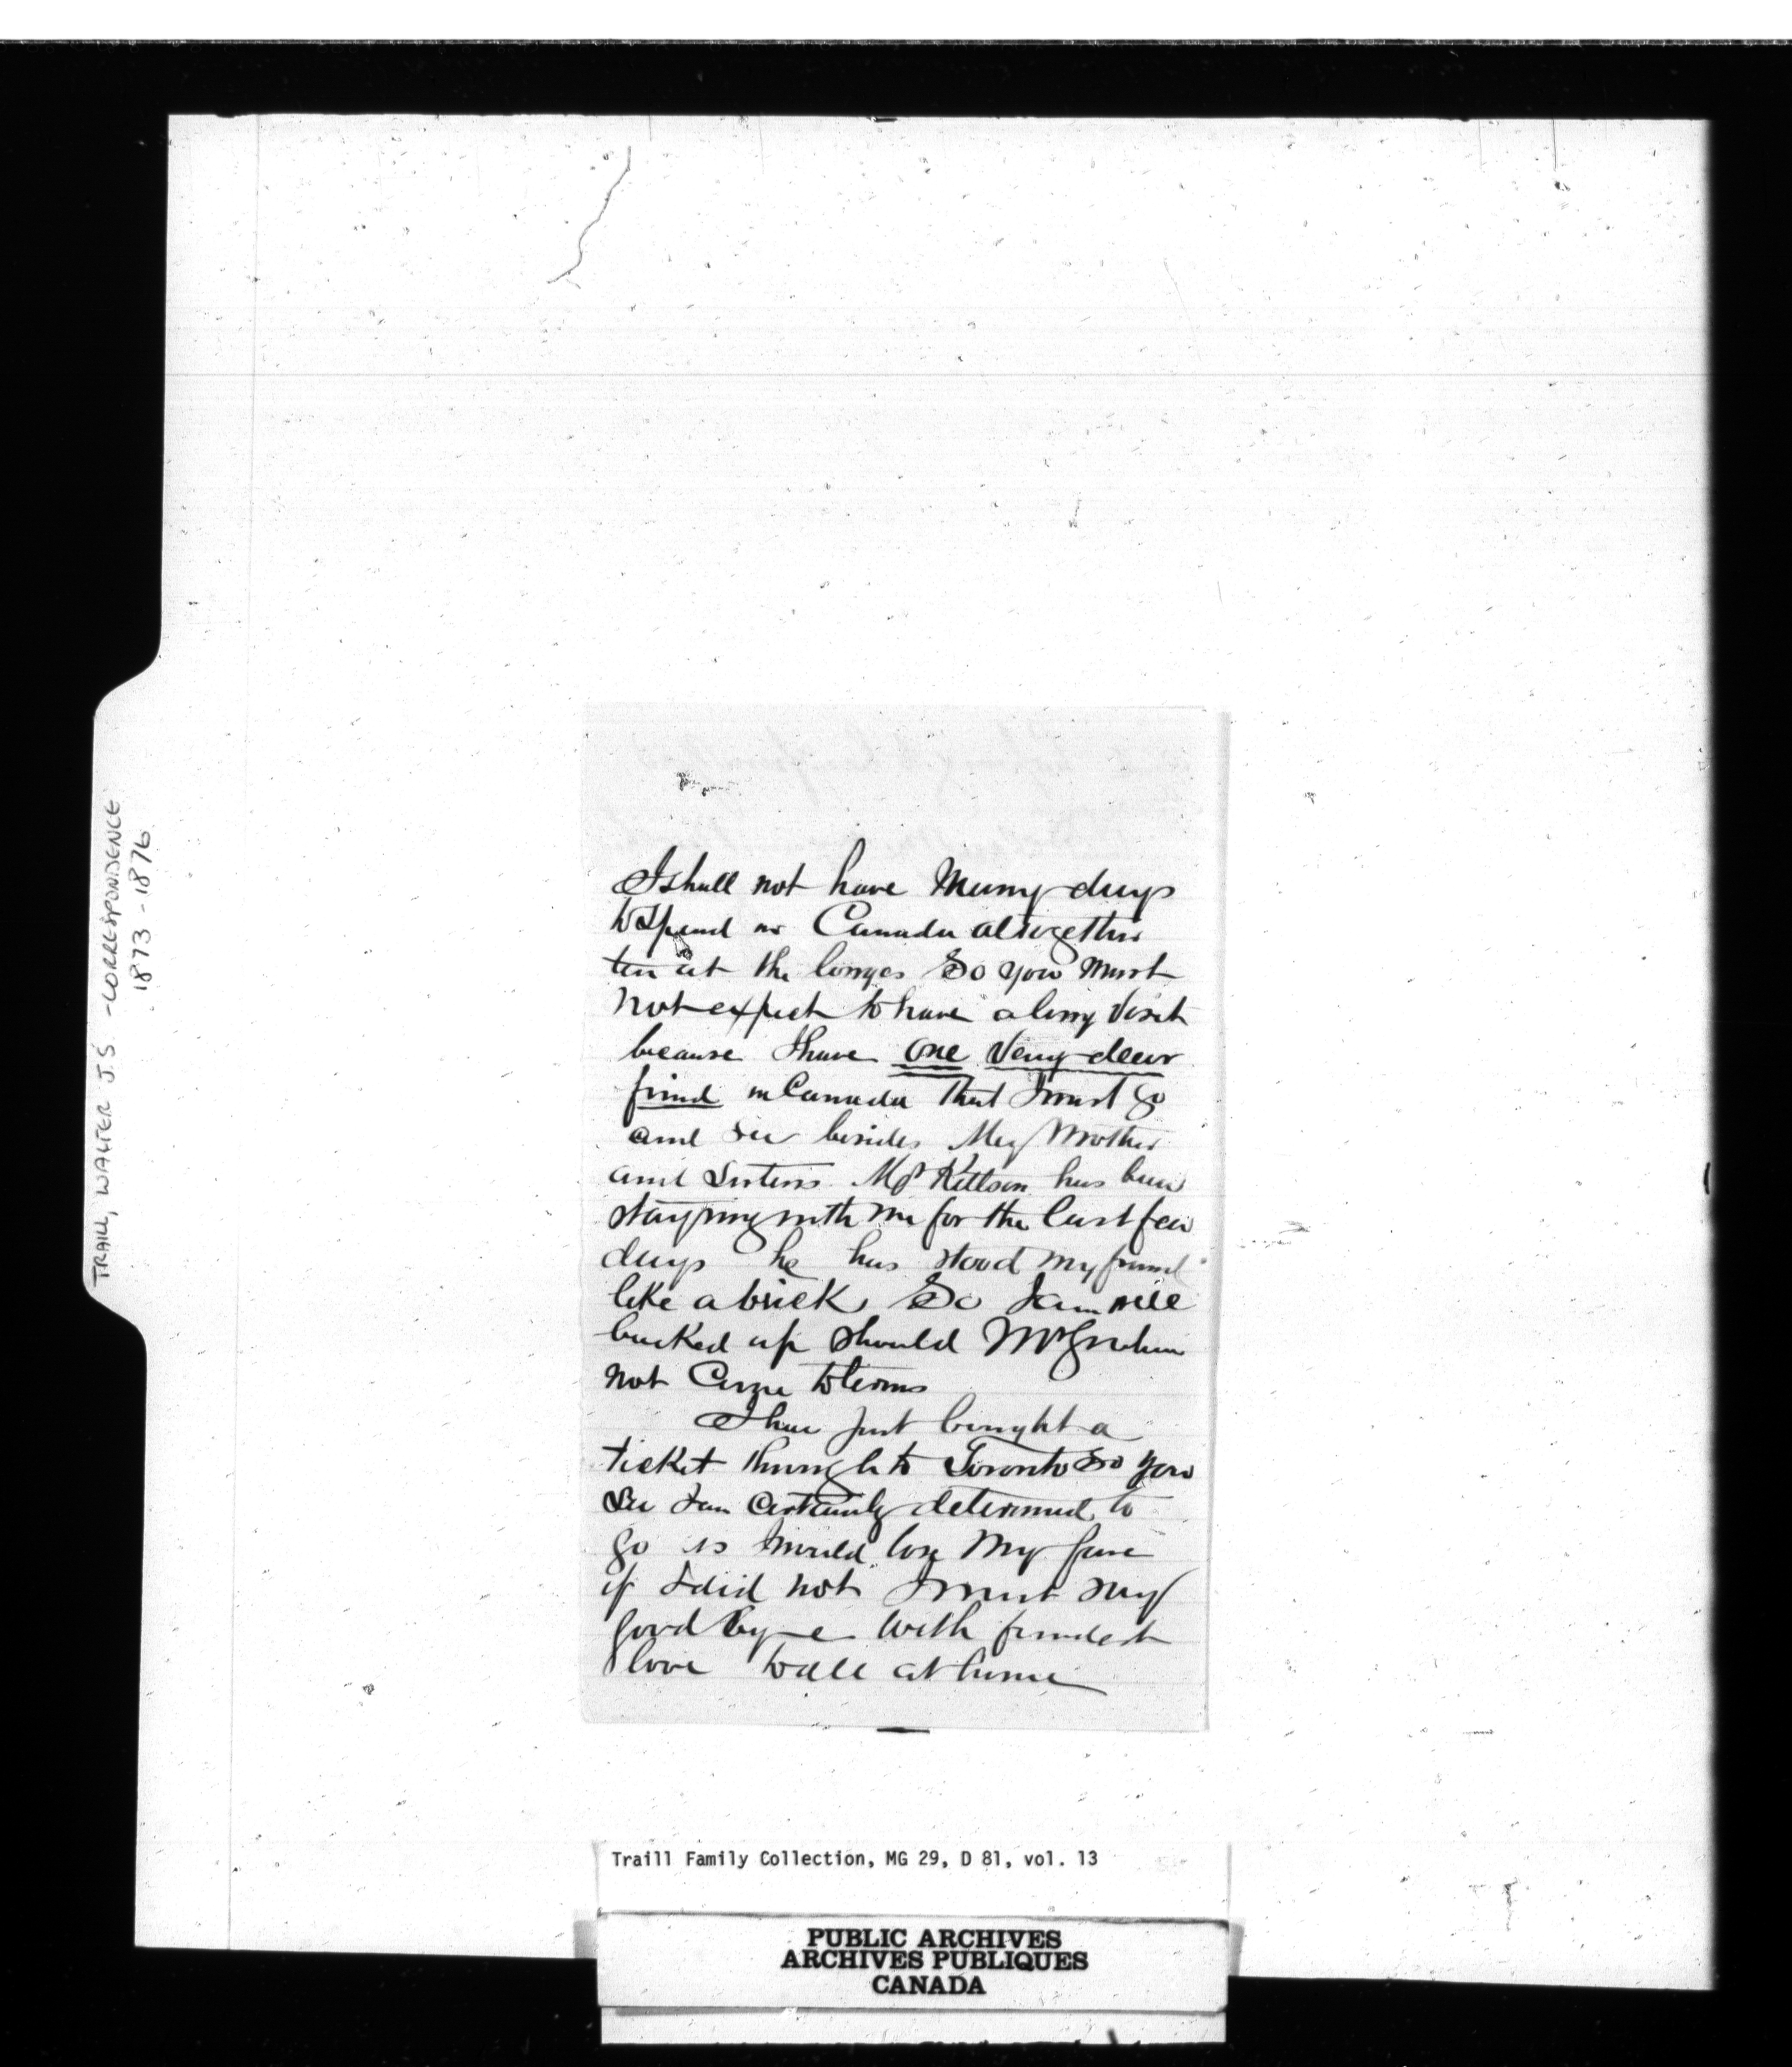 TRAILL, WALTER J.S. - CORRESPONDENCE
1873 - 1876
I shall not have Many days
to Spend in Canada altogether
ten at the longes So you Must
Not expect to have a long Visit
because I have One Very dear
friend in Canada that I must go
and see besides My Mother
and Sisters Mr Kittson has been
staying with me for the last few
days he has stood my friend
like a brick So I am well
backed up should Mr Graham
not Come to terms
I have just bought a
ticket through to Toronto so you
See I am Certainly determined to
go as I would lose My fare
if I did not I must say
good bye with fondest
love to all at home
Traill Family Collection, MG 29, D 81, vol. 13
PUBLIC ARCHIVES
ARCHIVES PUBLIQUES
CANADA